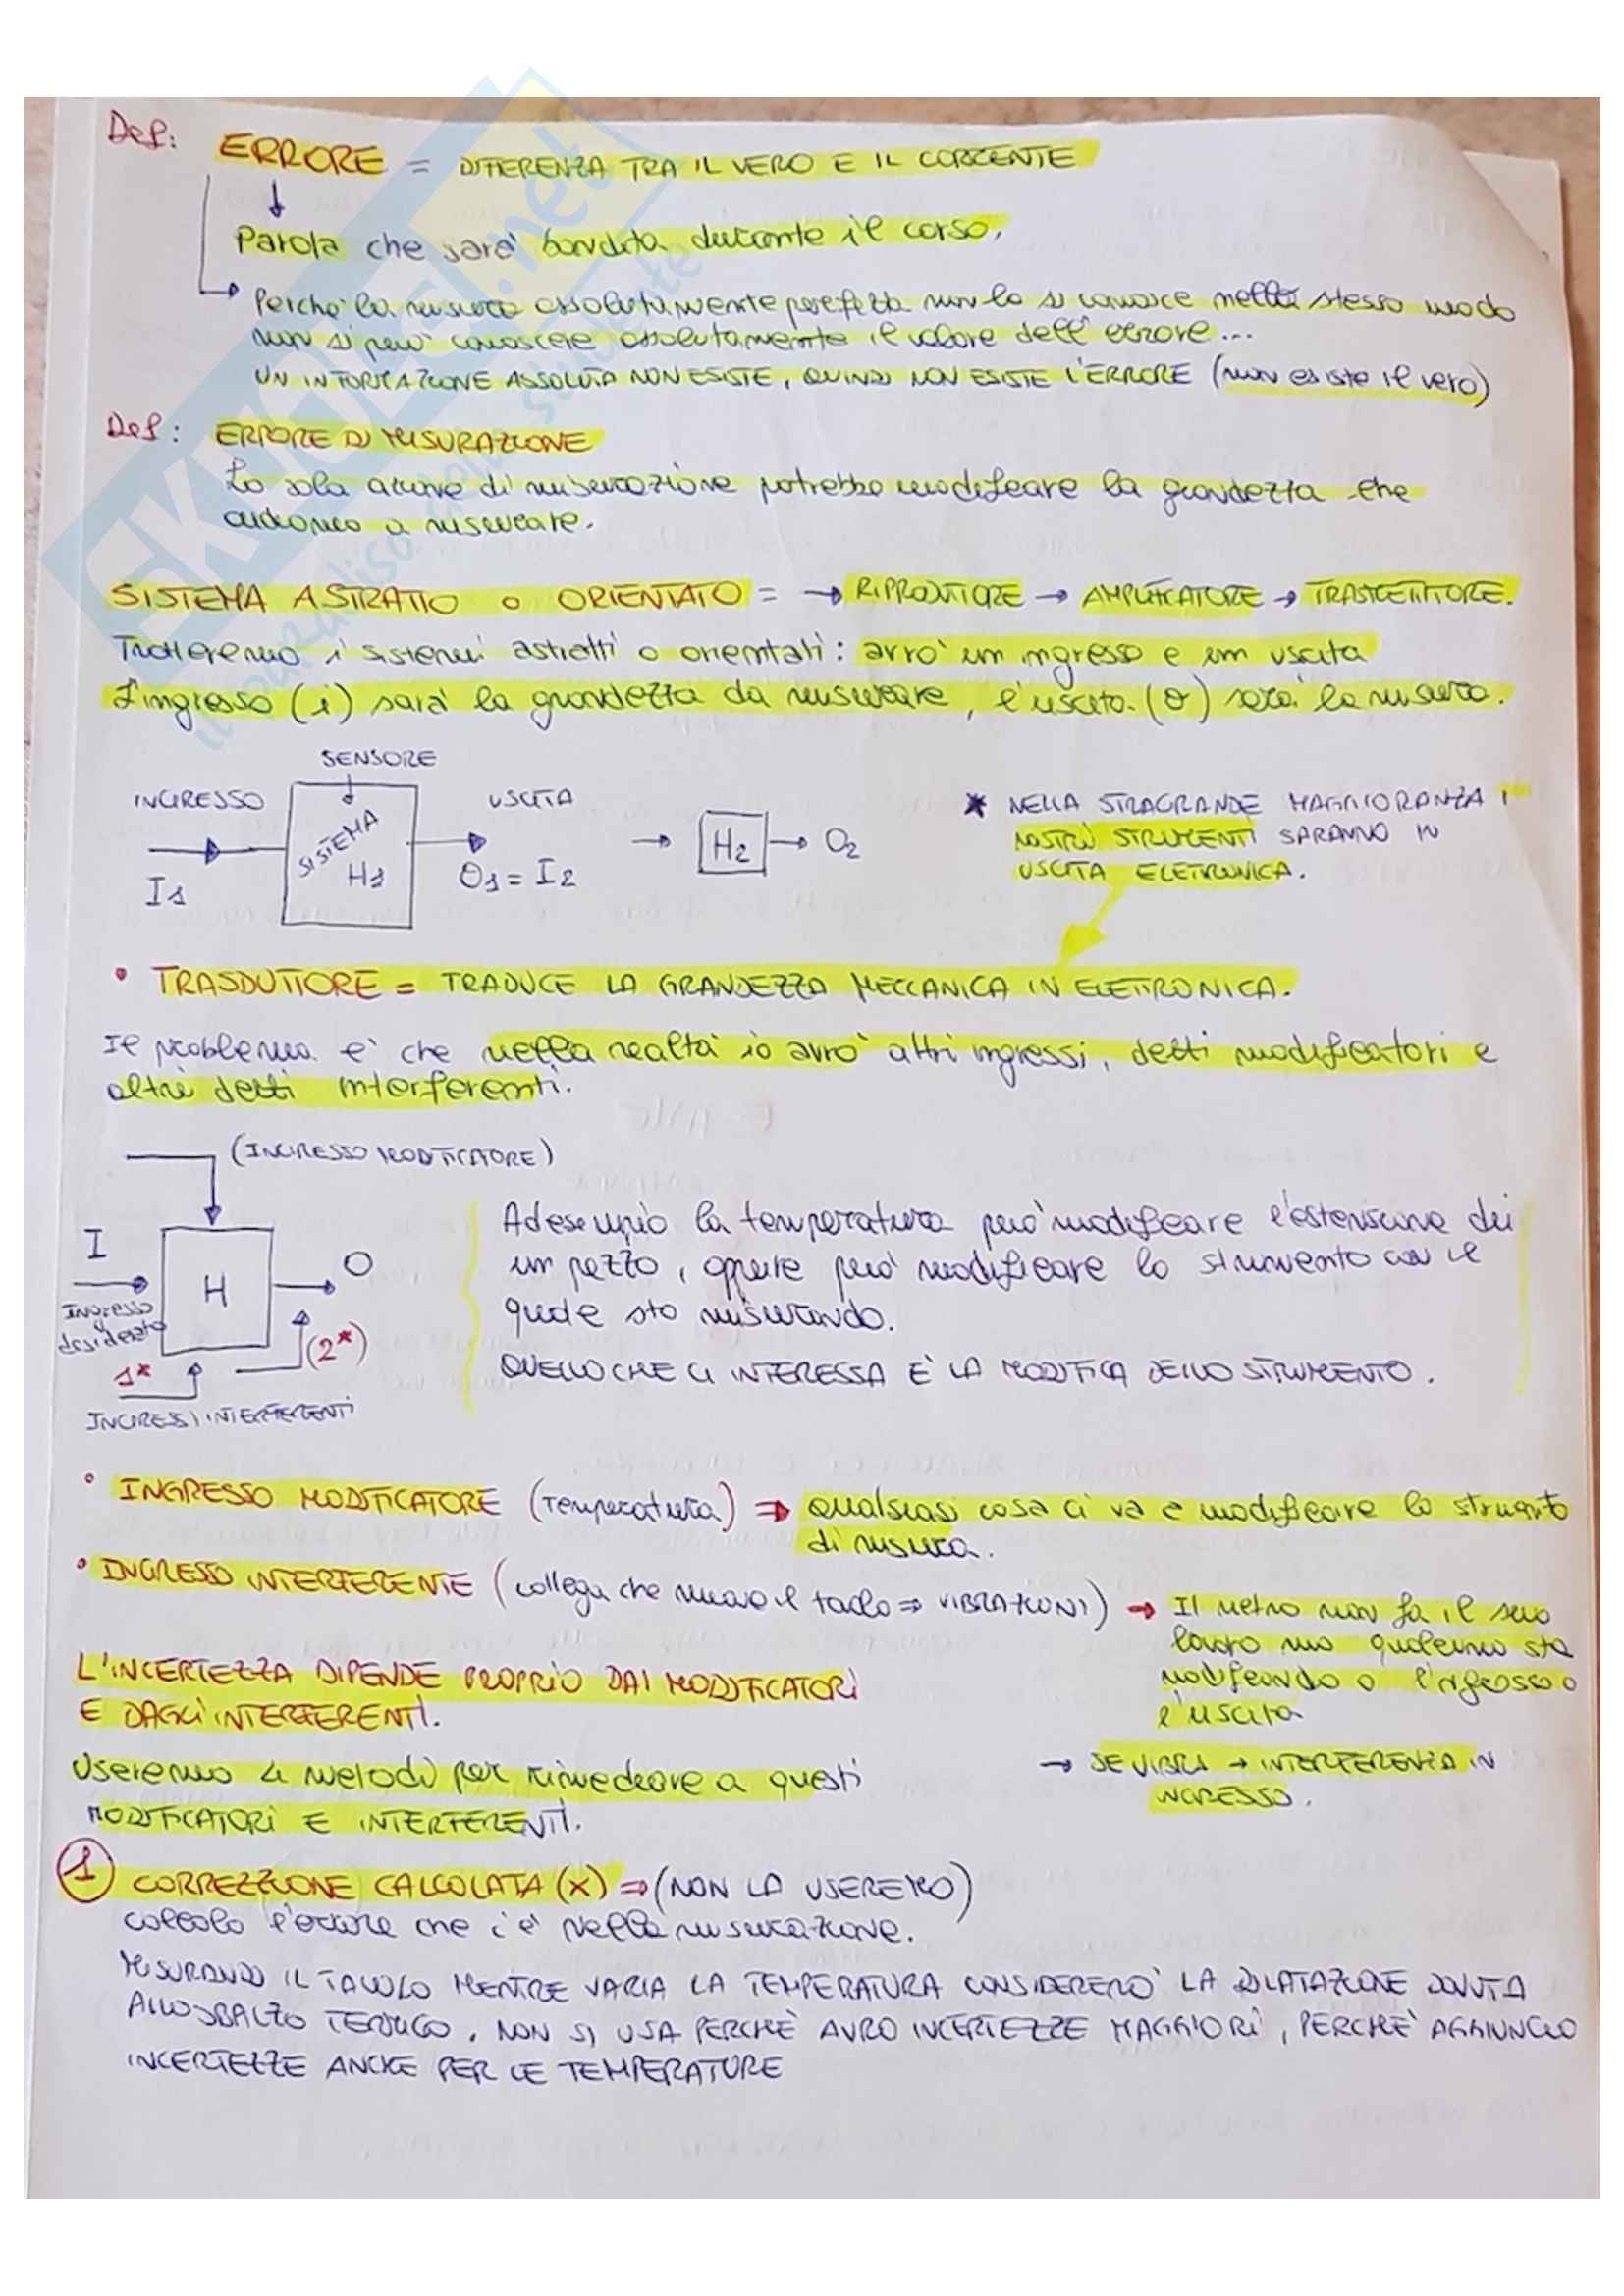 Def: ERRORE = DIFFERENZA TRA IL VERO E IL CORRENTE
Parola che sarà bandita durante il corso.
Perché la misura assolutamente perfetta non la si conosce nello stesso modo
non si può conoscere assolutamente il valore dell'errore...
UN INFORMAZIONE ASSOLUTA NON ESISTE, QUINDI NON ESISTE L'ERRORE (non esiste il vero)
Def: ERRORE DI MISURAZIONE
La sola azione di misurazione potrebbe modificare la grandezza che
andiamo a misurare.
SISTEMA ASTRATTO O ORIENTATO = → RIPRODUTTORE → AMPLIFICATORE → TRASMETTITORE.
Tratteremo i sistemi astratti o orientati: avrò un ingresso e un uscita
L'ingresso (i) sarà la grandezza da misurare, l'uscita (O) sarà la misura.
SENSORE
INGRESSO
USCITA
SISTEMA
H1
I1
O1 = I2
→ H2 → O2
* NELLA STRAGRANDE MAGGIORANZA I
NOSTRI STRUMENTI SARANNO IN
USCITA ELETRONICA.
• TRASDUTTORE = TRADUCE LA GRANDEZZA MECCANICA IN ELETTRONICA.
Il problema è che nella realtà io avrò altri ingressi, detti modificatori e
altri detti interferenti.
(INGRESSO MODIFICATORE)
I
Ingresso
desiderato
H
O
1*
(2*)
INGRESSI INTERFERENTI
Ad esempio la temperatura può modificare l'estensione di
un pezzo, oppure può modificare lo strumento con il
quale sto misurando.
QUELLO CHE CI INTERESSA È LA MODIFICA DELLO STRUMENTO.
• INGRESSO MODIFICATORE (Temperatura) ⇒ qualsiasi cosa ci va a modificare lo strumento
di misura.
• INGRESSO INTERFERENTE (collega che muove il tavolo ⇒ VIBRAZIONI) → Il metro non fa il suo
lavoro ma qualcuno sta
modificando o l'ingresso o
l'uscita
L'INCERTEZZA DIPENDE PROPRIO DAI MODIFICATORI
E DAGLI INTERFERENTI.
→ SE VIBRA → INTERFERENZA IN
INGRESSO.
Useremo 4 metodi per rimediare a questi
MODIFICATORI E INTERFERENTI.
1 CORREZZIONE CALCOLATA (X) ⇒ (NON LA USEREMO)
Calcolo l'errore che c'è nella misurazione.
MISURANDO IL TAVOLO MENTRE VARIA LA TEMPERATURA CONSIDERERÒ LA DILATAZIONE DOVUTA
ALLO SBALZO TERMICO. NON SI USA PERCHÈ AVRO INCERTEZZE MAGGIORI, PERCHÈ AGGIUNGO
INCERTEZZE ANCHE PER LE TEMPERATURE
SKUOLA.net
il paradiso dello studente